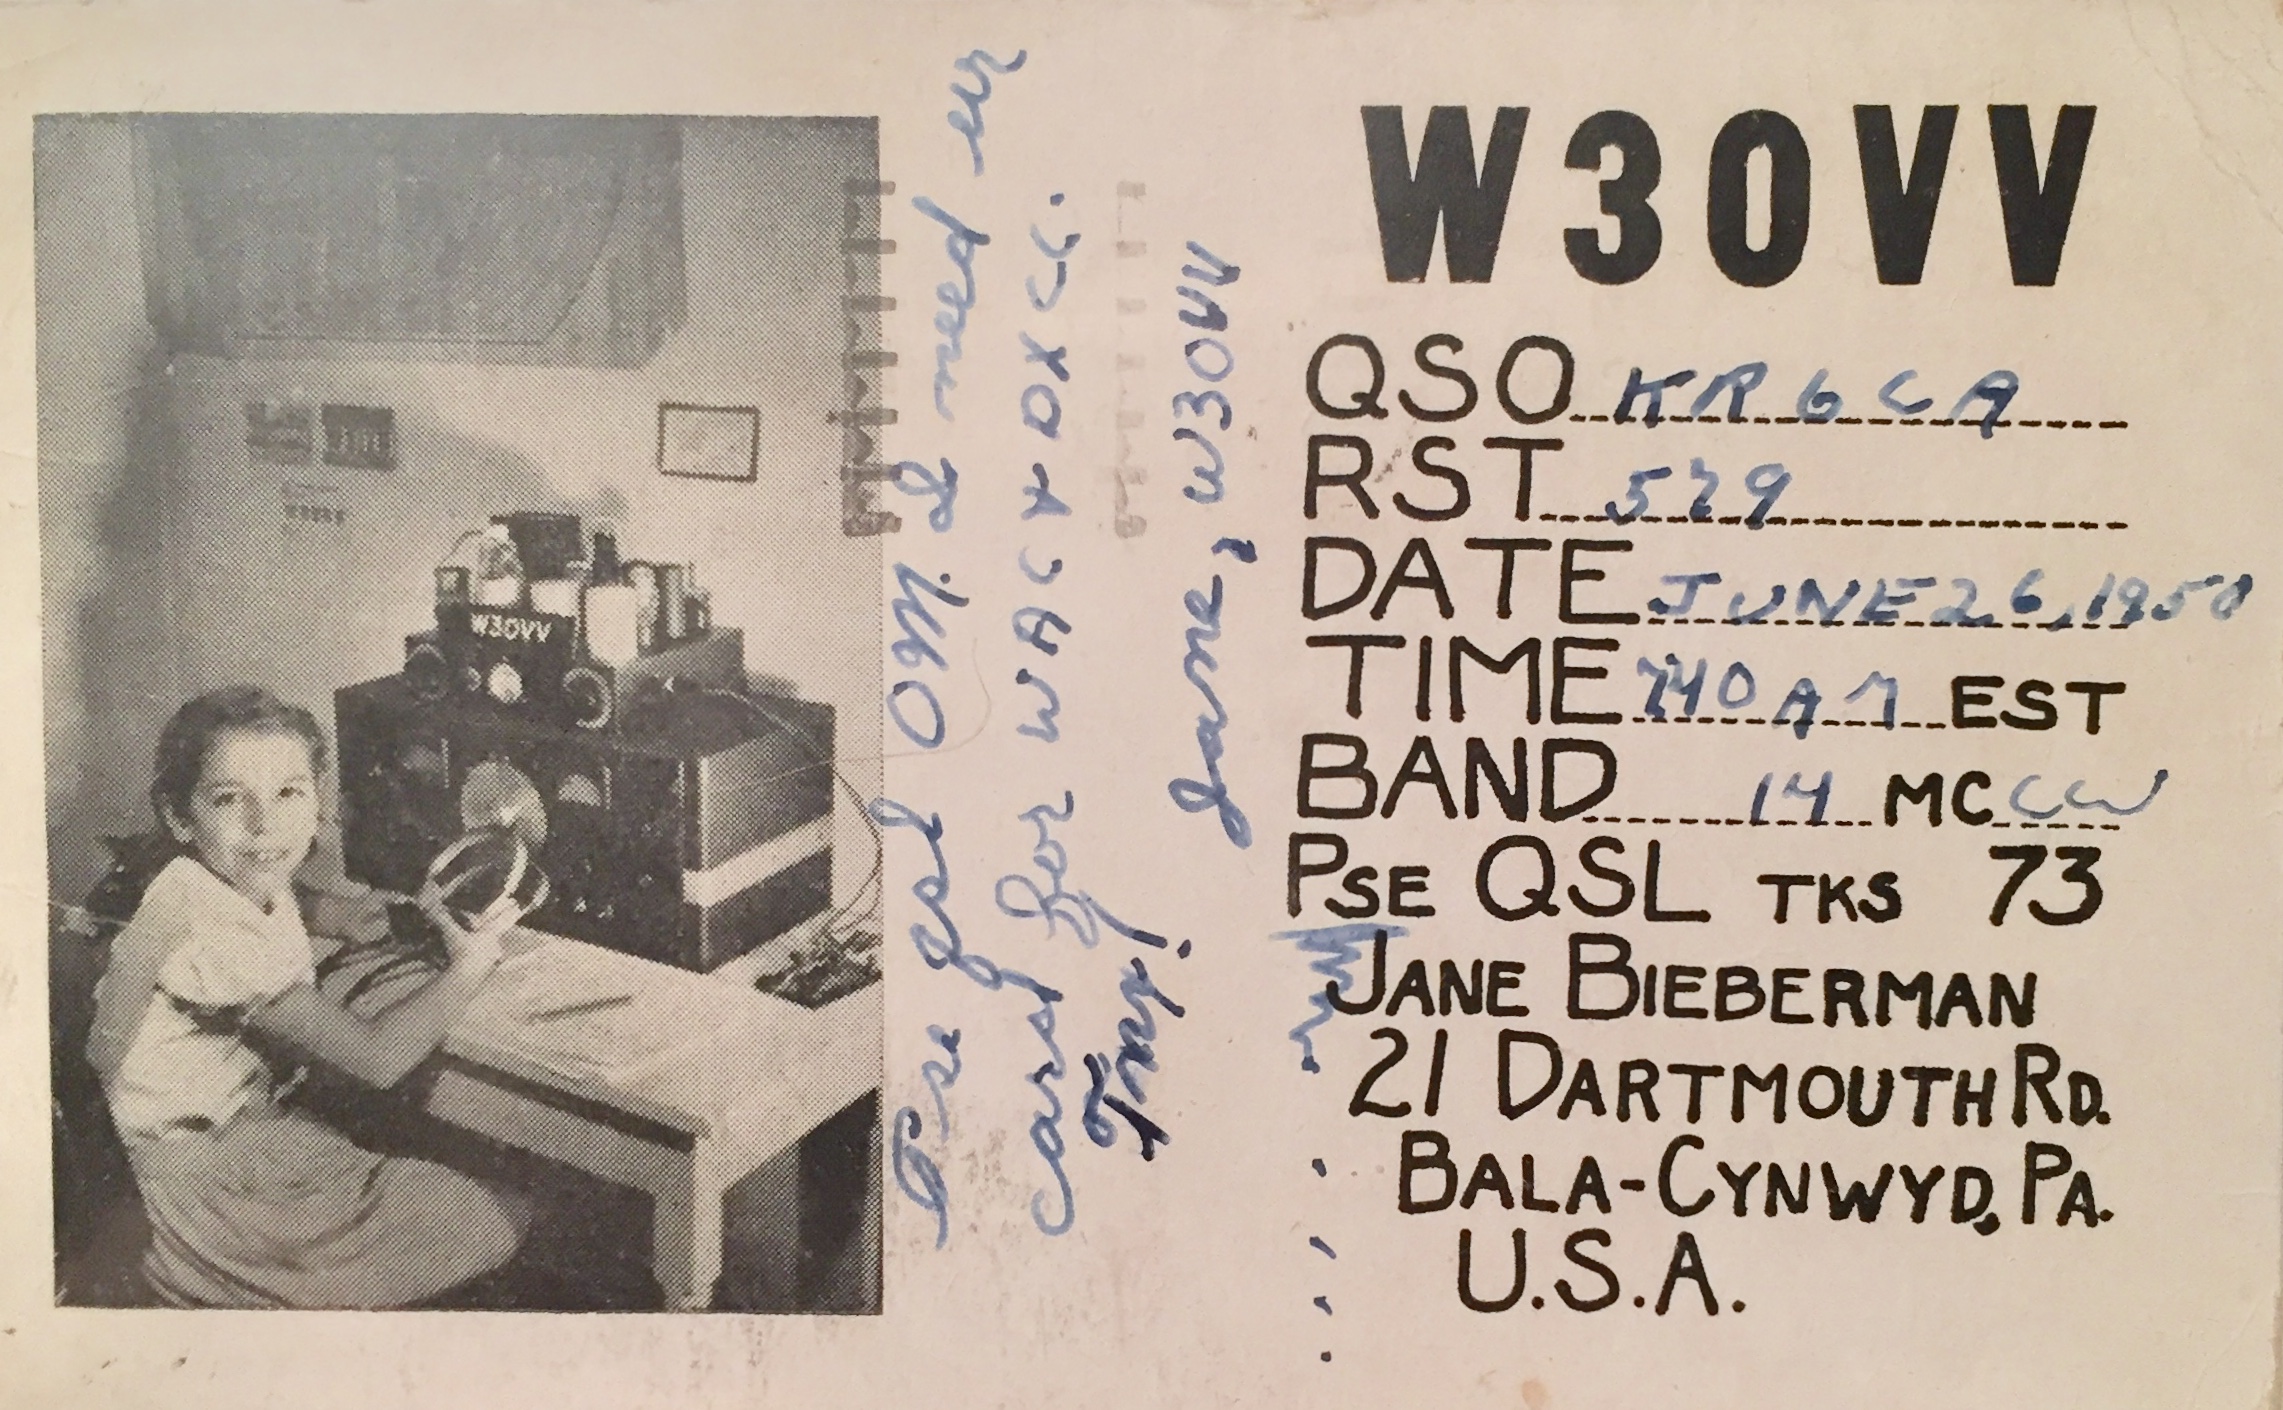 W3OVV
QSO KR6CA
RST 579
DATE JUNE 26, 1950
TIME 740 AM EST
BAND 14 MC CW
PSE QSL TKS 73
JANE BIEBERMAN
21 DARTMOUTH RD.
BALA-CYNWYD, PA.
U.S.A.
Pse qsl OM. I need ur
card for WAC & DXCC.
Tnx!
Jane, W3OVV
W3OVV